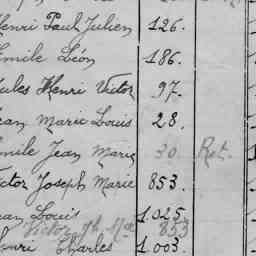 Henri Paul Julien 126.
Emile Léon 186.
Jules Henri Victor 97.
Jean Marie Louis 28.
Emile Jean Marie 30 Ret.
Victor Joseph Marie 853.
Jean Louis 1.025.
Victor Jh Mie 853
Henri Charles 1.003.